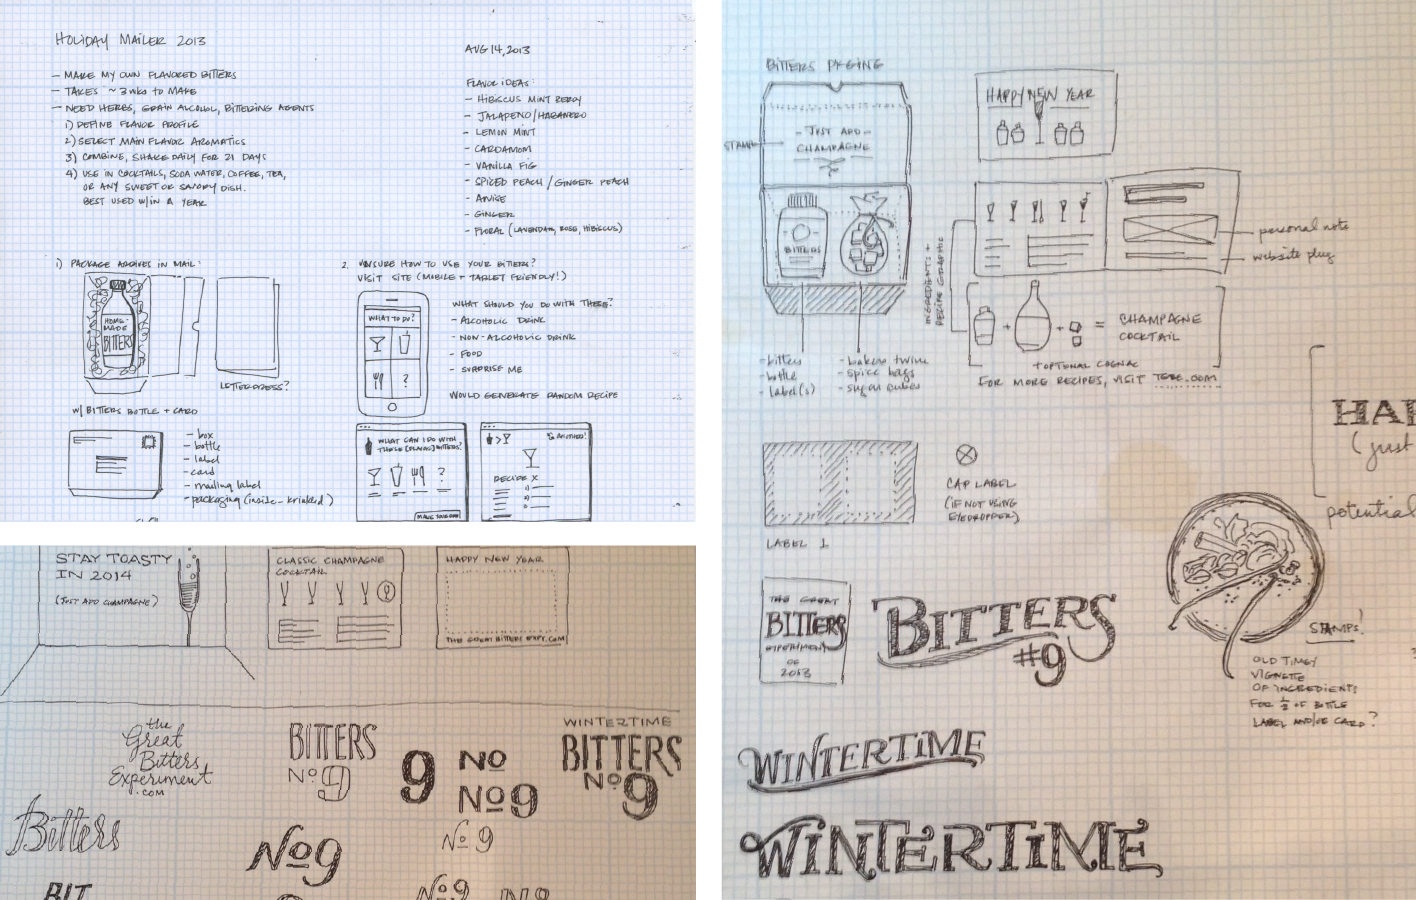 HOLIDAY MAILER 2013
AUG 14, 2013
– MAKE MY OWN FLAVORED BITTERS
– TAKES ~ 3 WKS TO MAKE
– NEED HERBS, GRAIN ALCOHOL, BITTERING AGENTS
1) DEFINE FLAVOR PROFILE
2) SELECT MAIN FLAVOR AROMATICS
3) COMBINE, SHAKE DAILY FOR 21 DAYS
4) USE IN COCKTAILS, SODA WATER, COFFEE, TEA,
OR ANY SWEET OR SAVORY DISH.
BEST USED W/IN A YEAR
FLAVOR IDEAS:
– HIBISCUS MINT BERRY
– JALAPENO/HABANERO
– LEMON MINT
– CARDAMOM
– VANILLA FIG
– SPICED PEACH / GINGER PEACH
– ANISE
– GINGER
– FLORAL (LAVENDAR, ROSE, HIBISCUS)
1) PACKAGE ARRIVES IN MAIL:
HOME-
MADE
BITTERS
LETTERPRESS?
W/ BITTERS BOTTLE + CARD
– box
– bottle
– label
– card
– mailing label
– packaging (inside – krinkled)
2. UNSURE HOW TO USE YOUR BITTERS?
VISIT SITE (MOBILE + TABLET FRIENDLY!)
WHAT TO DO?
?
WHAT SHOULD YOU DO WITH THESE?
– ALCOHOLIC DRINK
– NON-ALCOHOLIC DRINK
– FOOD
– SURPRISE ME
WOULD GENERATE RANDOM RECIPE
WHAT CAN I DO WITH
THESE [FLAVOR] BITTERS?
?
MAKE SOMETHING
ANOTHER!
RECIPE X
STAY TOASTY
IN 2014
(JUST ADD CHAMPAGNE)
CLASSIC CHAMPAGNE
COCKTAIL
HAPPY NEW YEAR
THE GREAT BITTERS EXPT.COM
the
Great
Bitters
Experiment
.COM
BITTERS
No 9
9
No
No9
WINTERTIME
BITTERS
No 9
Bitters
No9
No 9
BIT
No9
No9
BITTERS PKGING
STAMP
– JUST ADD –
CHAMPAGNE
BITTERS
– bitters
– bottle
– label(s)
– bakers twine
– spice bags
– sugar cubes
HAPPY NEW YEAR
INGREDIENTS +
RECIPE GRAPHIC
personal note
website plug
+ + = CHAMPAGNE
COCKTAIL
+OPTIONAL COGNAC
FOR MORE RECIPES, VISIT TGBE.COM
LABEL 1
CAP LABEL
(IF NOT USING
EYEDROPPER)
HAP
(just
potential
THE GREAT
BITTERS
EXPERIMENT
OF
2013
BITTERS
#9
STAMPS!
OLD TIMEY
VIGNETTE
OF INGREDIENTS
FOR ½ OF BOTTLE
LABEL AND/OR CARD?
WINTERTIME
WINTERTIME